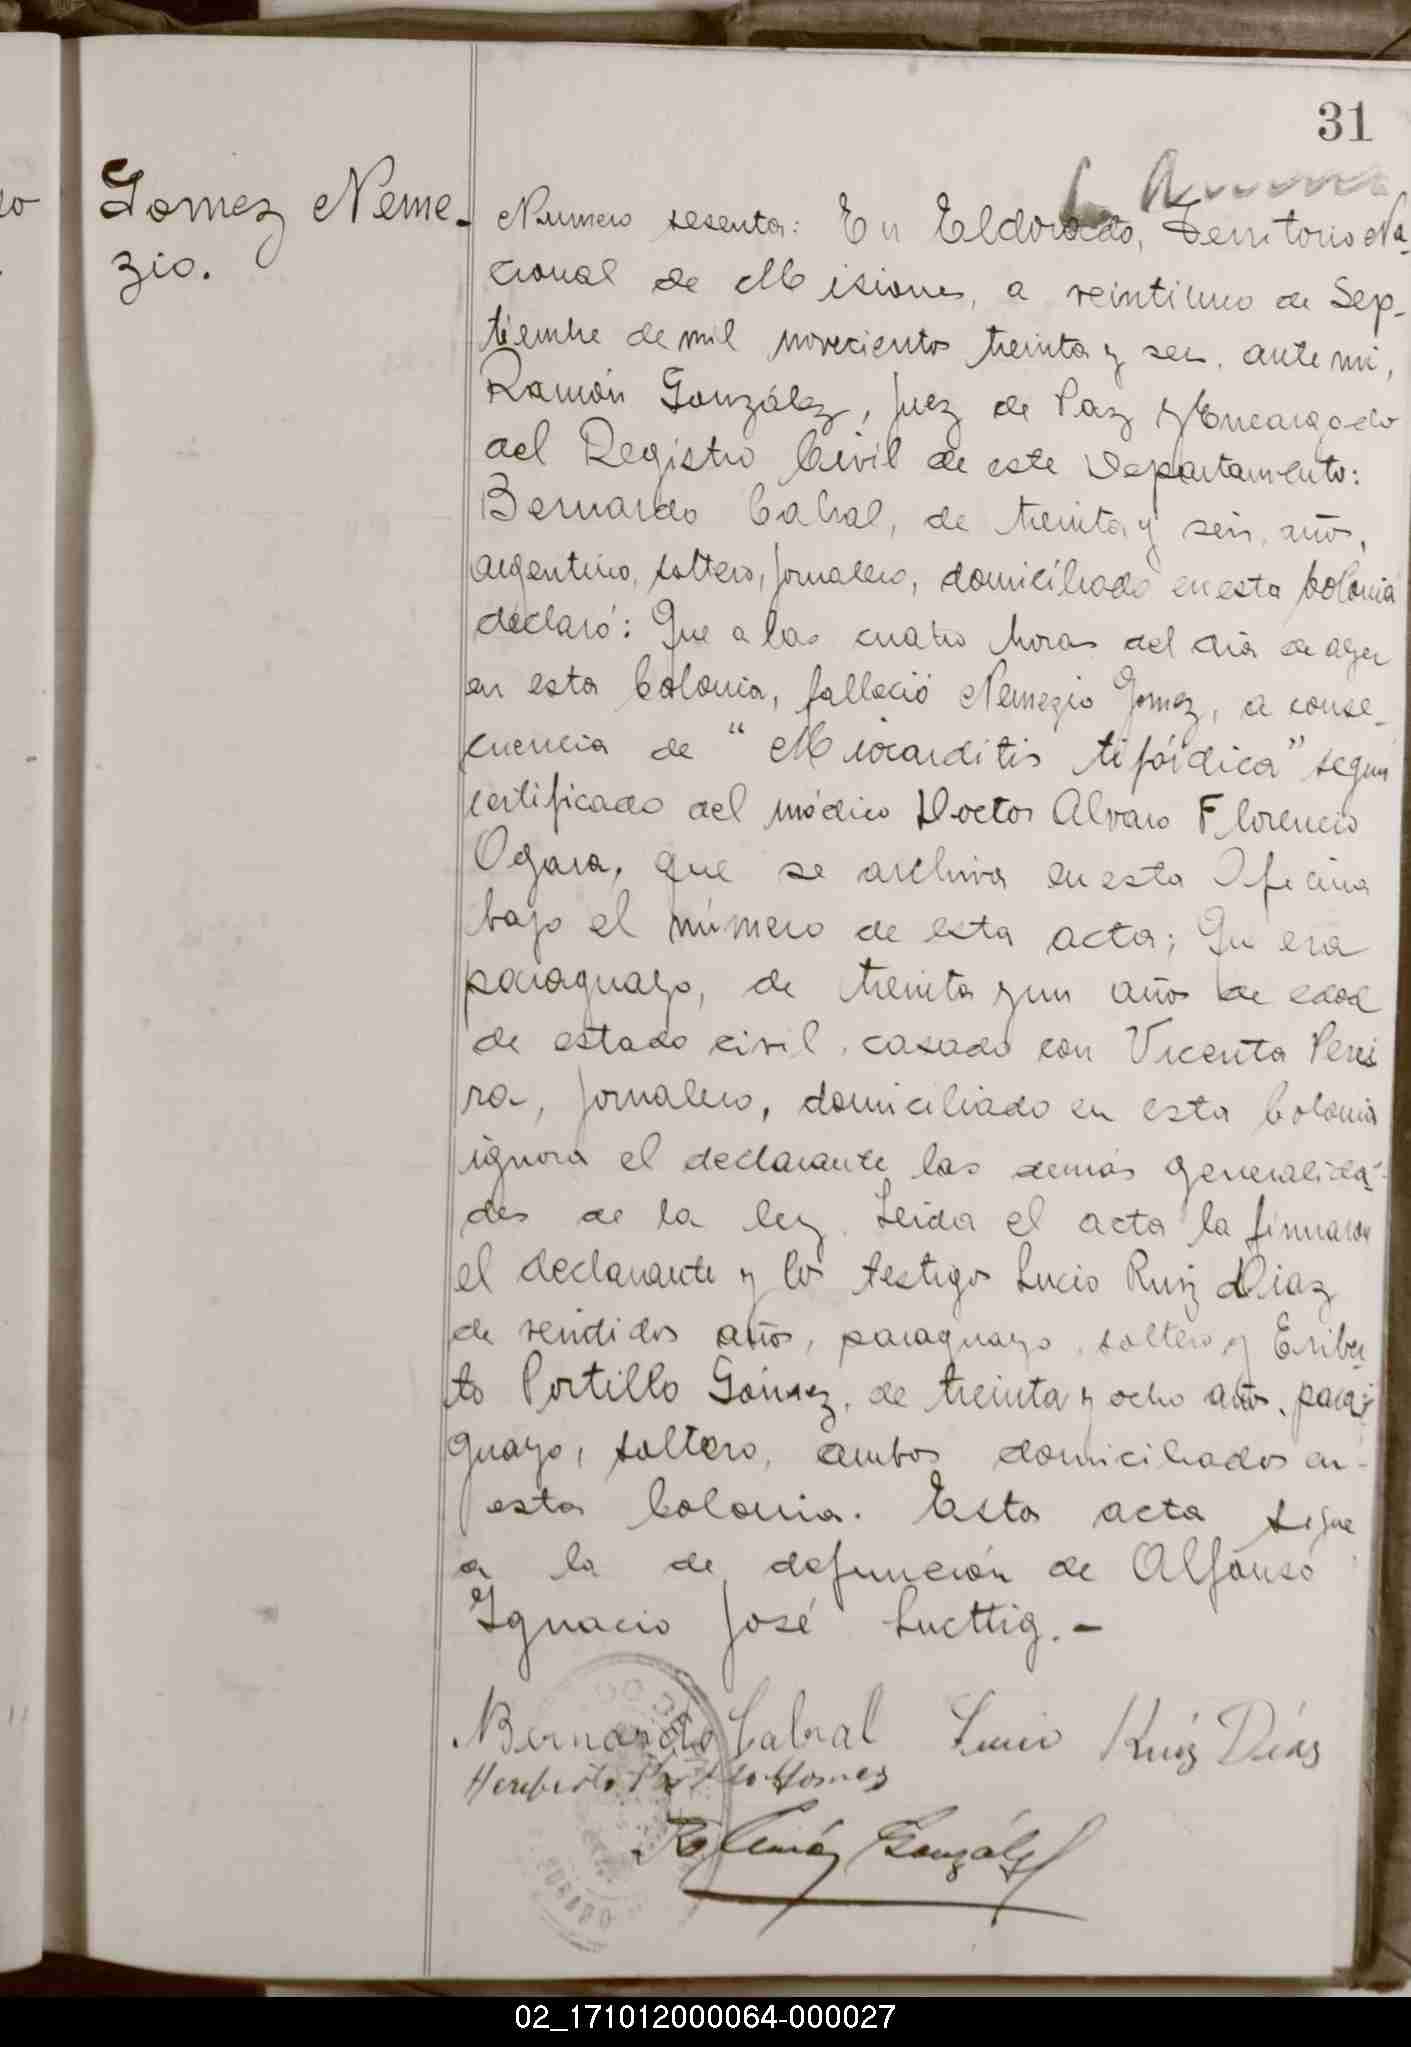 31
Gomez Neme-
zio.
Numero sesenta: En Eldorado, Territorio Na-
cional de Misiones, a veintiuno de Sep-
tiembre de mil novecientos treinta y seis, ante mi,
Ramón González, Juez de Paz y Encargado
del Registro Civil de este Departamento:
Bernardo Cabral, de treinta y seis, años,
argentino, soltero, jornalero, domiciliado en esta Colonia
declaró: Que a las cuatro horas del dia de ayer
en esta Colonia, falleció Nemezio Gomez, a conse-
cuencia de "Miocarditis tifóidica" segun
certificado del médico Doctor Alvaro Florencio
Ogara, que se archiva en esta Oficina
bajo el número de esta acta; Que era
paraguayo, de treinta y un años de edad
de estado civil, casado con Vicenta Perei
ra, jornalero, domiciliado en esta Colonia
ignora el declarante las demás generalida-
des de la ley. Leida el acta la firmaron
el declarante y los testigos Lucio Ruiz Diaz
de veintidos años, paraguayo, soltero y Eriber-
to Portillo Gómez, de treinta y ocho años, para-
guayo, soltero, ambos domiciliados en
esta Colonia. Esta acta sigue
a la de defunción de Alfonso
Ignacio José Lucttig.-
Bernardo Cabral Lucio Ruiz Diaz
Heriberto Portillo Gomez
Ramón González
02_171012000064-000027